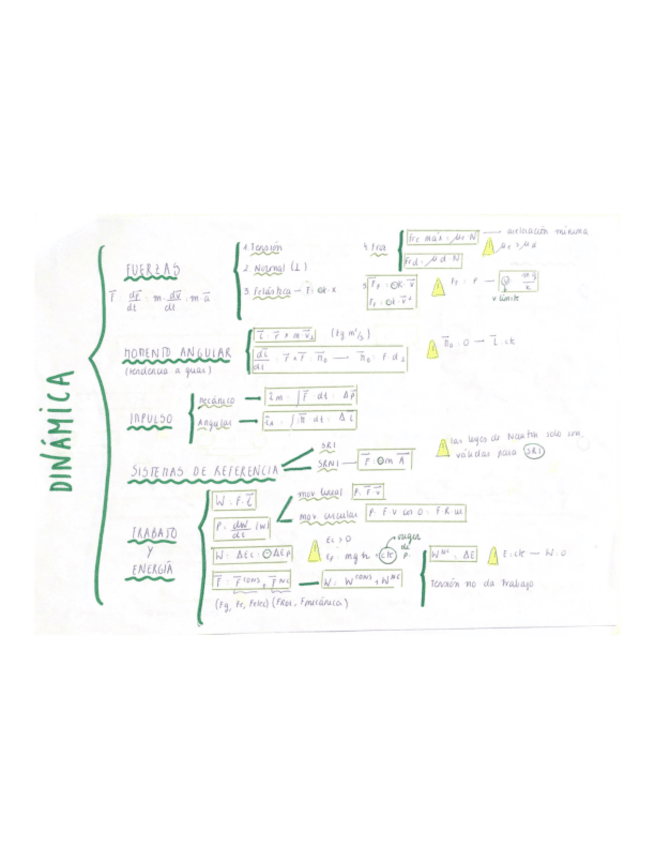 DINÁMICA
FUERZAS
F = dp/dt = m · dv/dt = m · a
1. Tensión
2. Normal (⊥)
3. Felástica — F = ⊖k · x
4. Froz
Fre máx = μe · N → aceleración mínima
Frd = μd · N
μe > μd
v límite
MOMENTO ANGULAR
(tendencia a girar)
(kg m²/s)
IMPULSO
mecánico → Im = ∫ F dt = Δp
Angular →
SISTEMAS DE REFERENCIA
SRI
SRNI — F = ⊖m A
las leyes de Newton solo son
válidas para SRI
TRABAJO
Y
ENERGÍA
W = F · L
P = dW/dt (W)
mov lineal P = F · v
mov circular P = F v cos 0 = F R ω
W = ΔEc = ⊖ΔEp
Ec > 0
Ep = mgh + cte
origen
de
F = F CONS + F NC — W = W CONS + W NC
(Fg, Fe, Felec) (Froz, Fmecánica)
W NC = ΔE
E = cte — W = 0
Tensión no da trabajo